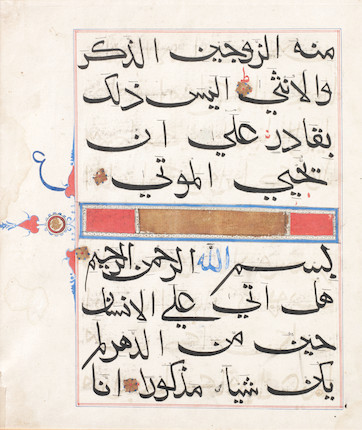 منه الزوجين الذكر
والانثي اليس ذلك
بقادر علي ان
يحيي الموتي
بسم الله الرحمن الرحيم
هل اتي علي الانسان
حين من الدهر لم
يكن شيا مذكورا انا